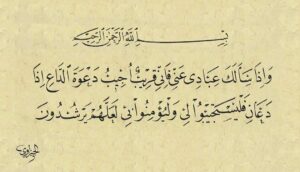 بِسْمِ اللَّهِ الرَّحْمَنِ الرَّحِيمِ
وَإِذَا سَأَلَكَ عِبَادِي عَنِّي فَإِنِّي قَرِيبٌ أُجِيبُ دَعْوَةَ الدَّاعِ إِذَا
دَعَانِ فَلْيَسْتَجِيبُوا لِي وَلْيُؤْمِنُوا بِي لَعَلَّهُمْ يَرْشُدُونَ